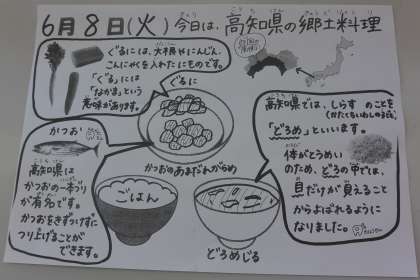 6月8日(火) 今日は、高知県の郷土料理
ぐるには、大根やにんじん、
こんにゃくを入れたにものです。
「ぐる」には
「なかま」という
意味があります。
ぐるに
かつお
高知県は
かつおの一本づり
が有名です。
かつおをきずつけずに
つり上げることが
できます。
かつおのあまだれがらめ
ごはん
どろめじる
高知県では、しらすのことを
「どろめ」といいます。
体がとうめい
のため、どろの中では、
目だけが見えること
からよばれるように
なりました。